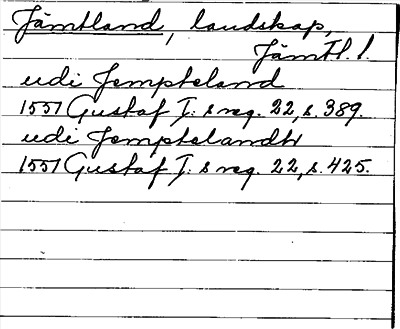 Jämtland, landskap,
Jämtl. l.
udi Jempteland
1551 Gustaf I:s reg. 22, s. 389.
udi Jemptelandh
1551 Gustaf I:s reg. 22, s. 425.